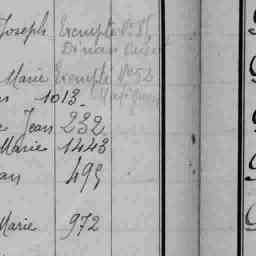 Joseph Exempté N° 81
Dinan
Marie Exempté N° 52
1013
Jean 232
Marie 1443
an 495
Marie 972